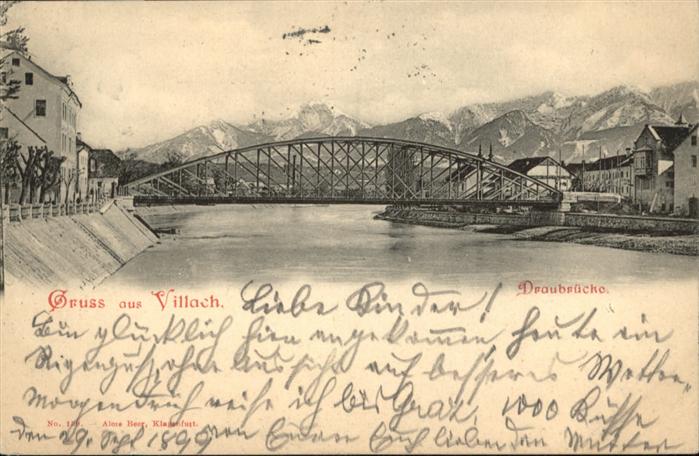 Gruss aus Villach.
Draubrücke.
Liebe Kinder!
Bin glücklich hier angekommen heute ein
ohne Aussicht auf besseres Wetter,
Morgen früh reise ich bis Graz. 1000 Küsse
No. Alois Beer, Klagenfurt.
den 29. Sept 1899 von Euren Euch liebenden Mutter